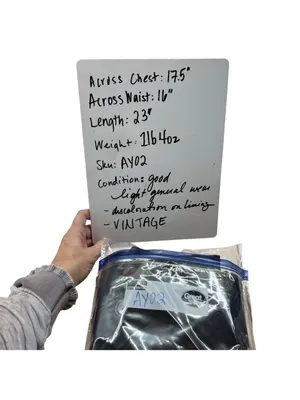 Across Chest: 17.5"
Across Waist: 16"
Length: 23"
Weight: 1lb 4oz
Sku: AY02
Condition: good
light general wear
- discoloration on lining
- VINTAGE
AY02
Great